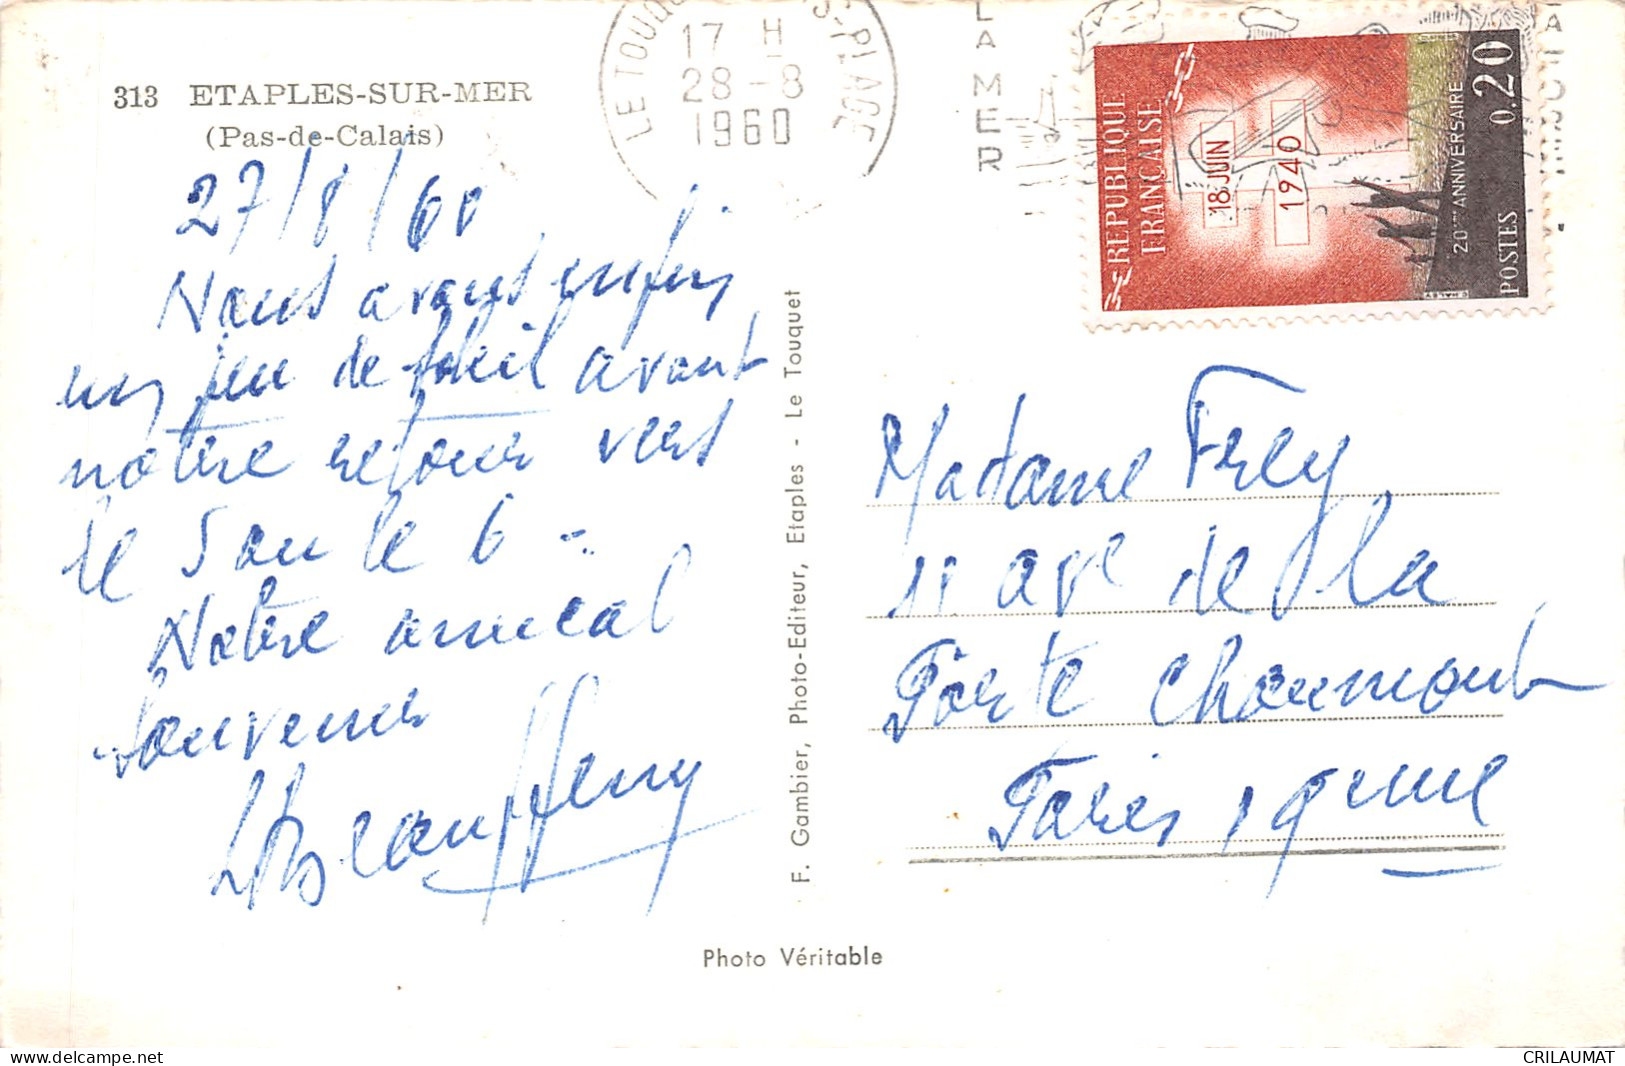 313 ETAPLES-SUR-MER
(Pas-de-Calais)
27/8/60
Nous avons enfin
un peu de soleil avant
notre retour vers
le 5 ou le 6 -
Notre amical
souvenir
LE TOUQUET PLAGE
17 H
28 - 8
1960
LA MER
REPUBLIQUE
FRANCAISE
18 JUIN
1940
20me ANNIVERSAIRE
POSTES 0,20
F. Gambier, Photo-Editeur, Etaples - Le Touquet
Madame Frey
11 ave de la
Porte Chaumont
Paris 19eme
Photo Véritable
www.delcampe.net
CRILAUMAT